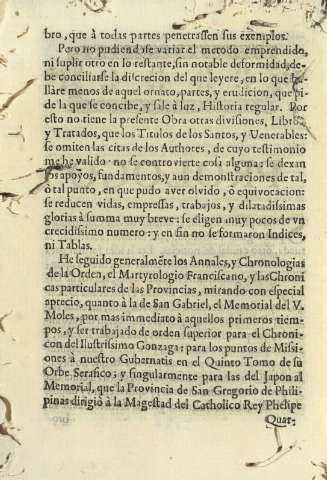 bro, que à todas partes penetrassen sus exemplos.
Pero no pudiendose variar el metodo emprendido,
ni suplir otro en lo restante, sin notable deformidad, de-
be conciliarse la discrecion del que leyere, en lo que ha-
llàre menos de aquel ornato, partes, y erudicion, que pi-
de la que se concibe, y sale à luz, Historia regular. Por
esto no tiene la presente Obra otras divisiones, Libros,
y Tratados, que los Titulos de los Santos, y Venerables:
se omiten las citas de los Authores, de cuyo testimonio
me he valido: no se controvierte cosa alguna: se dexan
los apoyos, fundamentos, y aun demonstraciones de tal,
ò tal punto, en que pudo aver olvido, ò equivocacion:
se reducen vidas, empressas, trabajos, y dilatadissimas
glorias à summa muy breve: se eligen muy pocos de vn
crecidissimo numero: y en fin no se formaron Indices,
ni Tablas.
He seguido generalmẽte los Annales, y Chronologias
de la Orden, el Martyrologio Franciscano, y las Chroni
cas particulares de las Provincias, mirando con especial
aprecio, quanto à la de San Gabriel, el Memorial del V.
Moles, por mas immediato à aquellos primeros tiem-
pos, y ser trabajado de orden superior para el Chroni-
con del Ilustrissimo Gonzaga: para los puntos de Missi-
ones à nuestro Gubernatis en el Quinto Tomo de su
Orbe Serafico; y singularmente para las del Japon al
Memorial, que la Provincia de San Gregorio de Phili-
pinas dirigiò à la Magestad del Catholico Rey Phelipe
Quar-